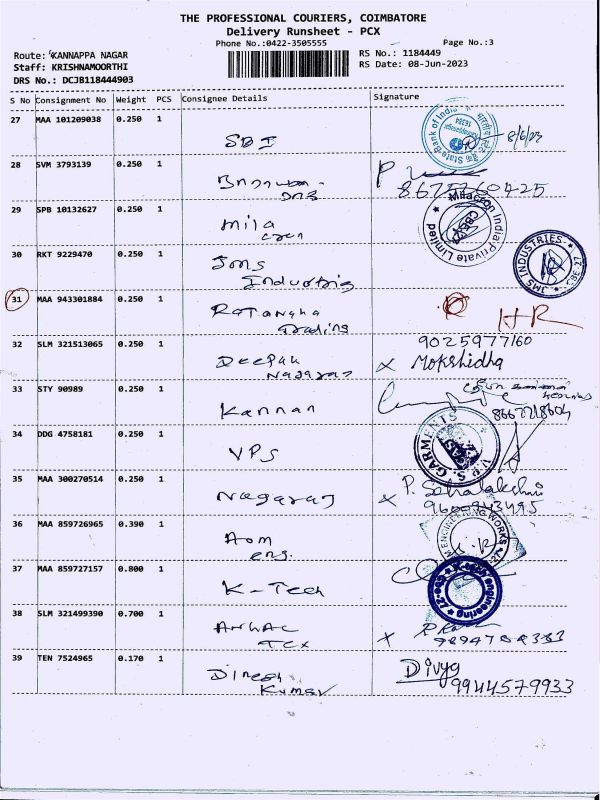 THE PROFESSIONAL COURIERS, COIMBATORE
Delivery Runsheet - PCX
Phone No.:0422-3505555 Page No.:3
Route: KANNAPPA NAGAR RS No.: 1184449
Staff: KRISHNAMOORTHI RS Date: 08-Jun-2023
DRS No.: DCJB118444903
S No Consignment No Weight PCS Consignee Details Signature
27 MAA 101209038 0.250 1
SBI State Bank of India 8/6/23
28 SVM 3793139 0.250 1
29 SPB 10132627 0.250 1
Mila Milacron India Private Limited
30 RKT 9229470 0.250 1
Jms JMS INDUSTRIES
31 MAA 943301884 0.250 1
Ratangha HR
Trading
32 SLM 321513065 0.250 1 9025977160
Deepak Mokshidha
Nagaraj
33 STY 90989 0.250 1
Kannan
34 DDG 4758181 0.250 1
VPS V.P.S. GARMENTS
35 MAA 300270514 0.250 1
Nagaraj P.
9600943495
36 MAA 859726965 0.390 1
Aom ENGINEERING WORKS
eng.
37 MAA 859727157 0.800 1
K-Tech K-tech engineering
38 SLM 321499390 0.700 1
Tex
39 TEN 7524965 0.170 1 Divya
Dinesh 9944579933
Kumar